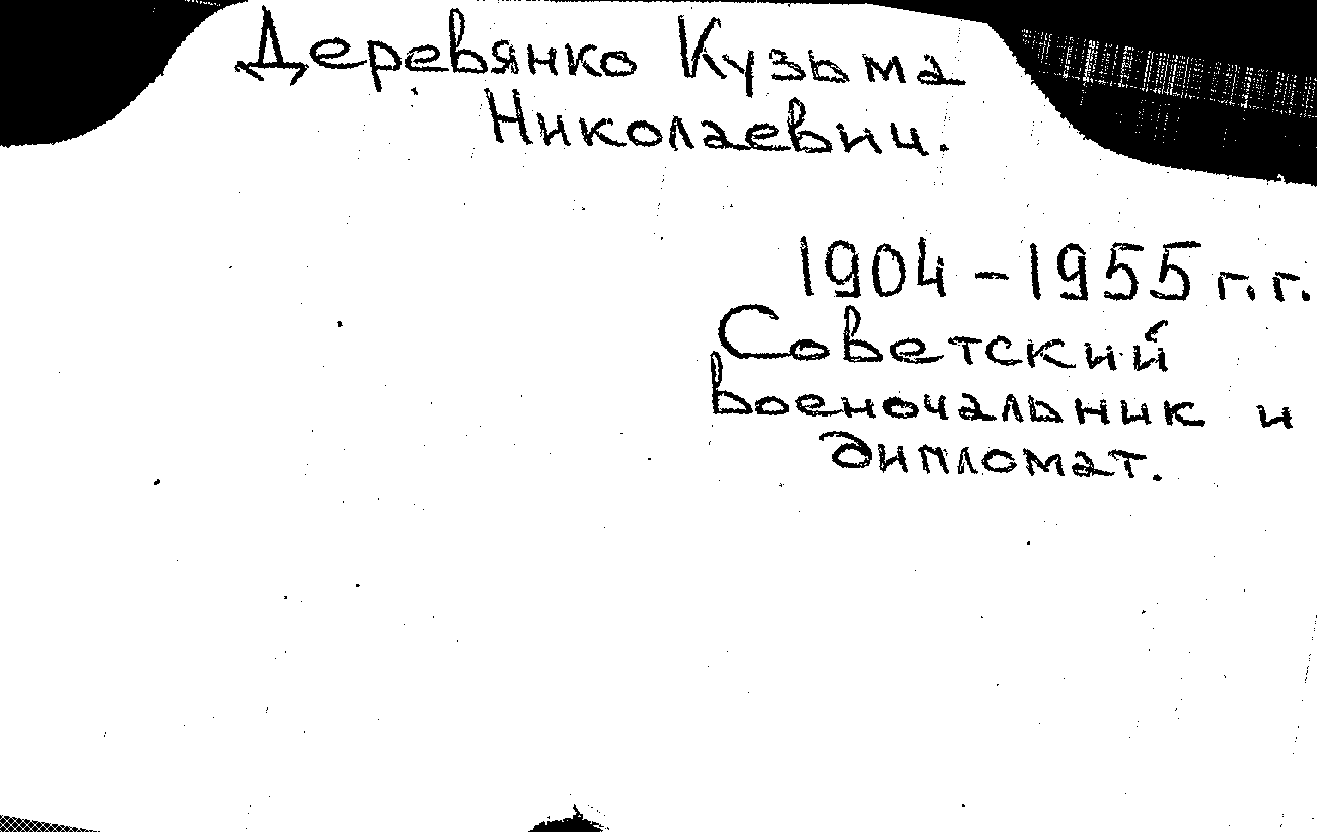 Деревянко Кузьма
Николаевич.
1904-1955 г.г.
Советский
военочальник и
дипломат.